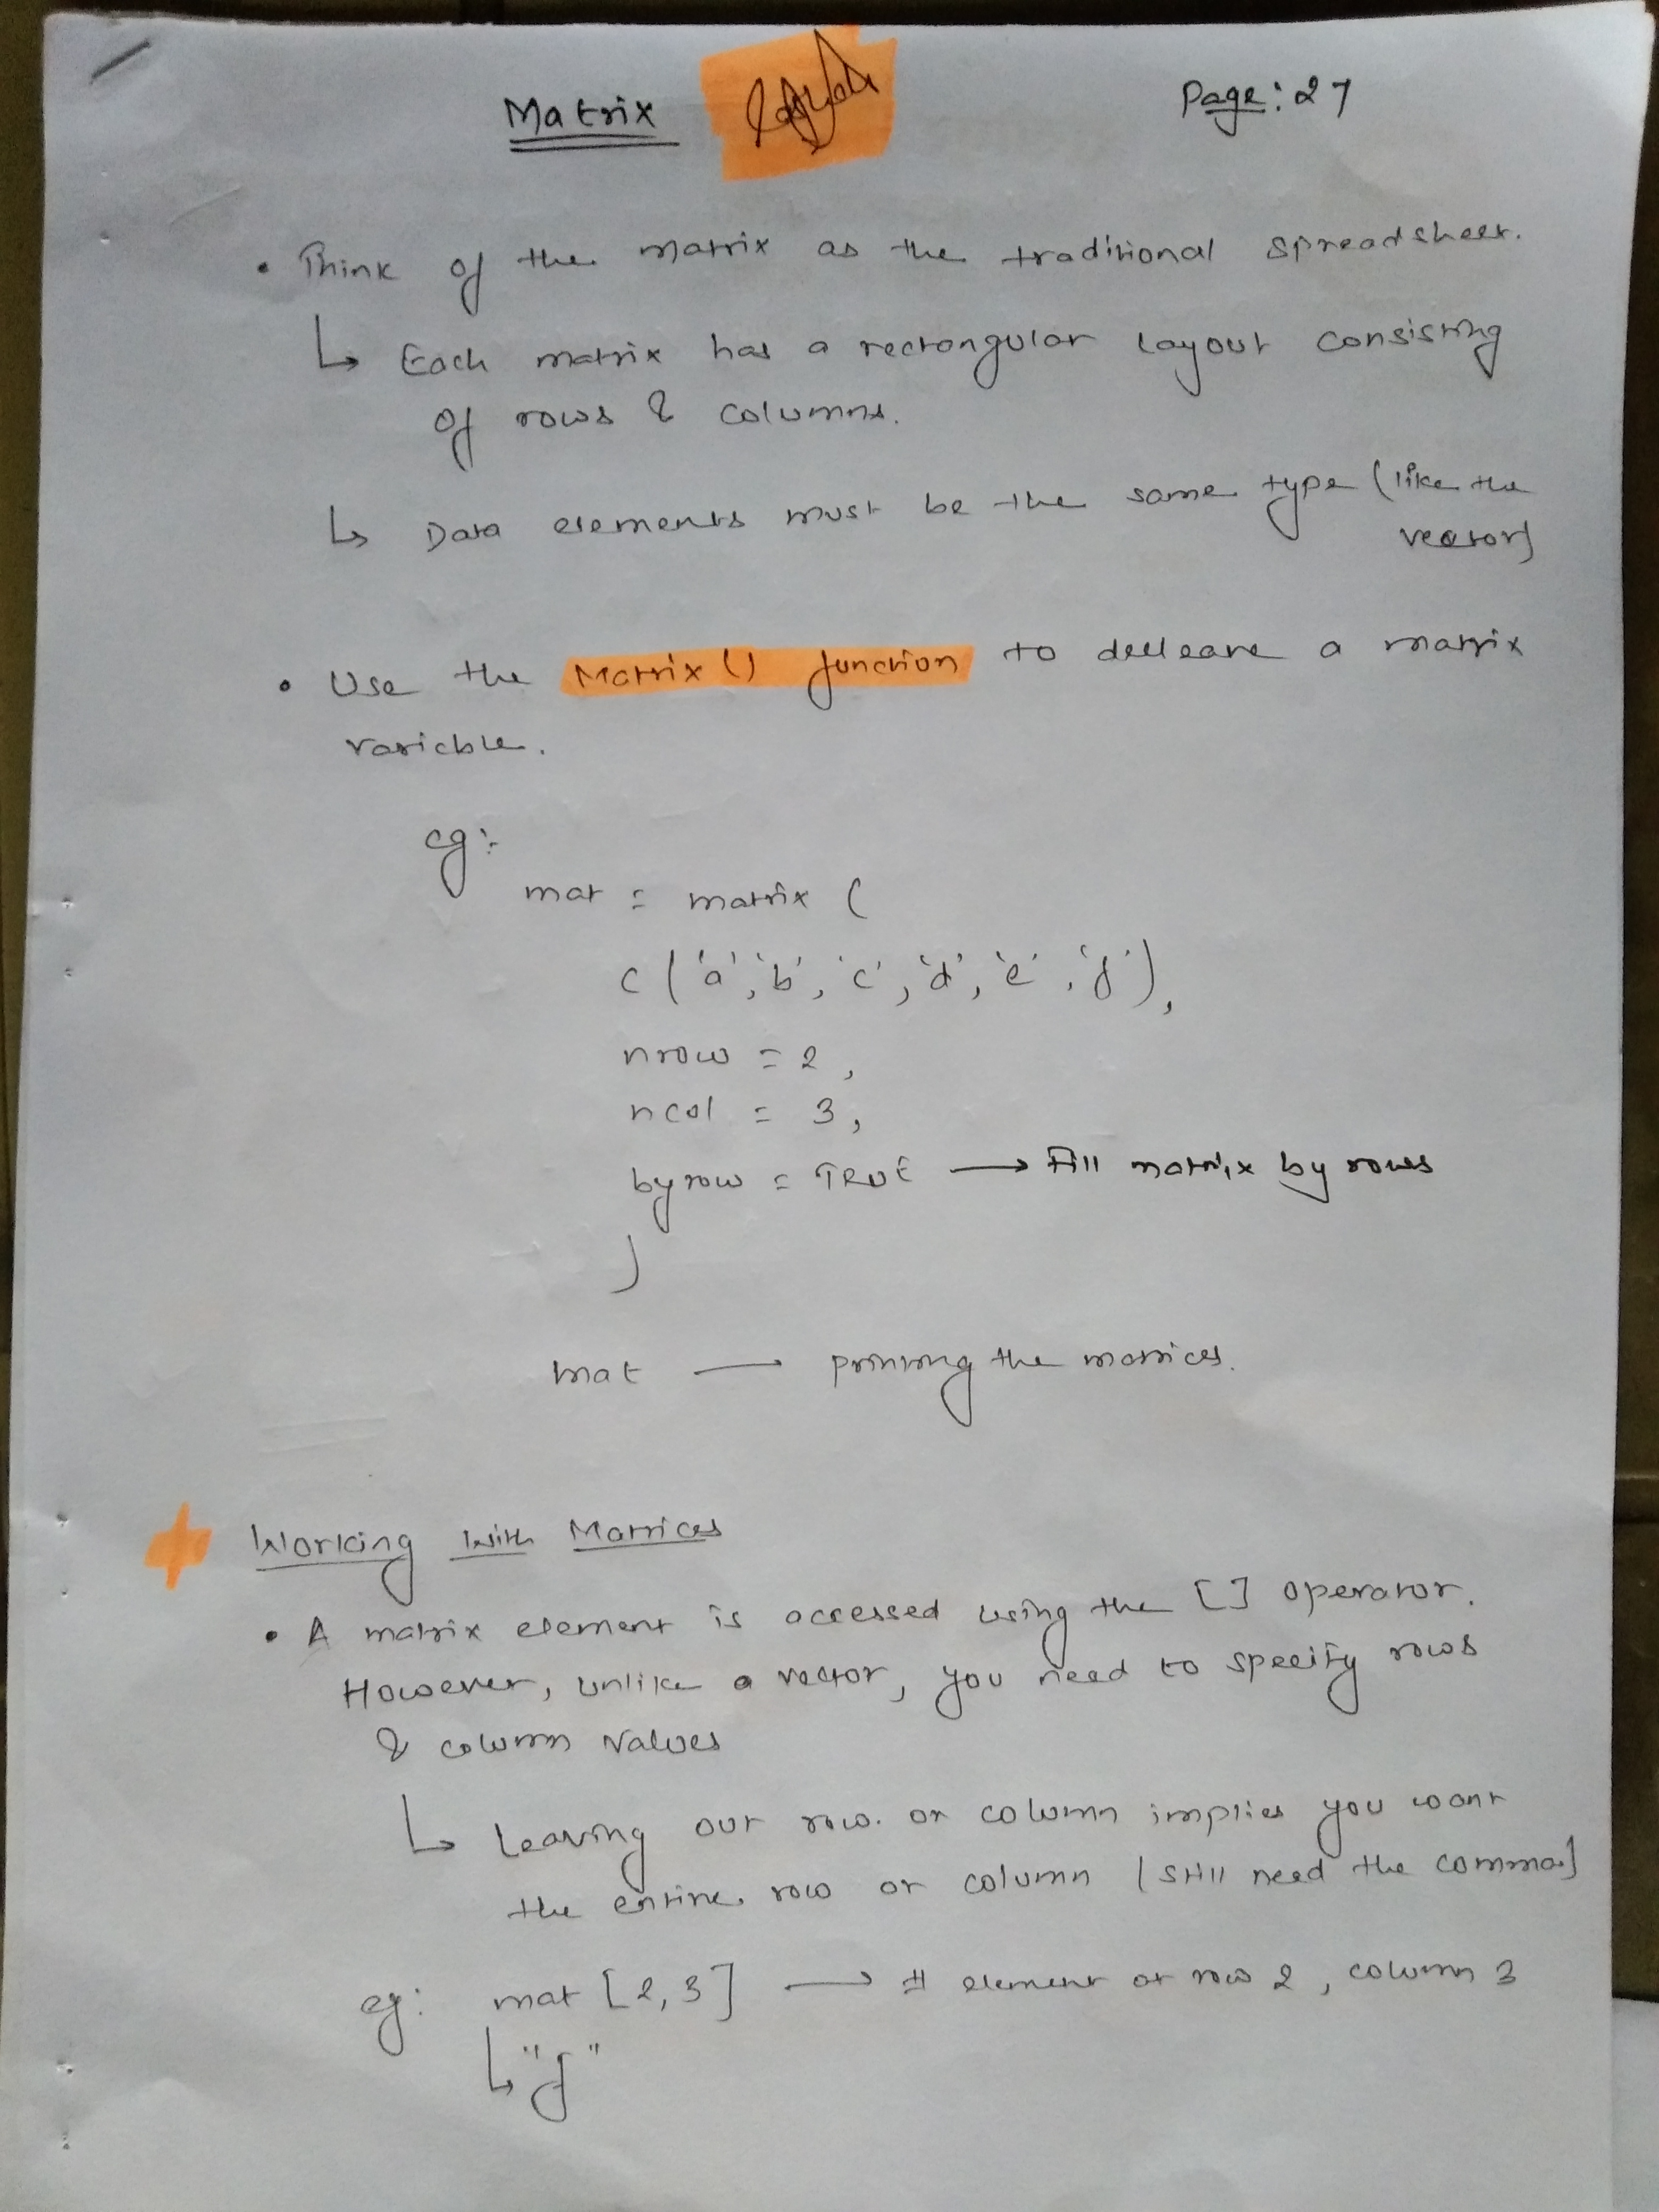 Matrix
Page: 27
• Think of the matrix as the traditional spreadsheet.
↳ Each matrix has a rectangular layout consisting
of rows & columns.
↳ Data elements must be the same type (like the
vector)
• Use the Matrix () function to decleare a matrix
variable.
eg:
mat = matrix (
c ('a', 'b', 'c', 'd', 'e', 'f'),
nrow = 2,
ncol = 3,
byrow = TRUE → Fill matrix by rows
)
mat — printing the matrices.
Working With Matrices
• A matrix element is accessed using the [] operator.
However, unlike a vector, you need to specify rows
& column values
↳ Leaving out row or column implies you want
the entire row or column (still need the comma)
eg: mat [2,3] → # element at row 2, column 3
↳ "f"